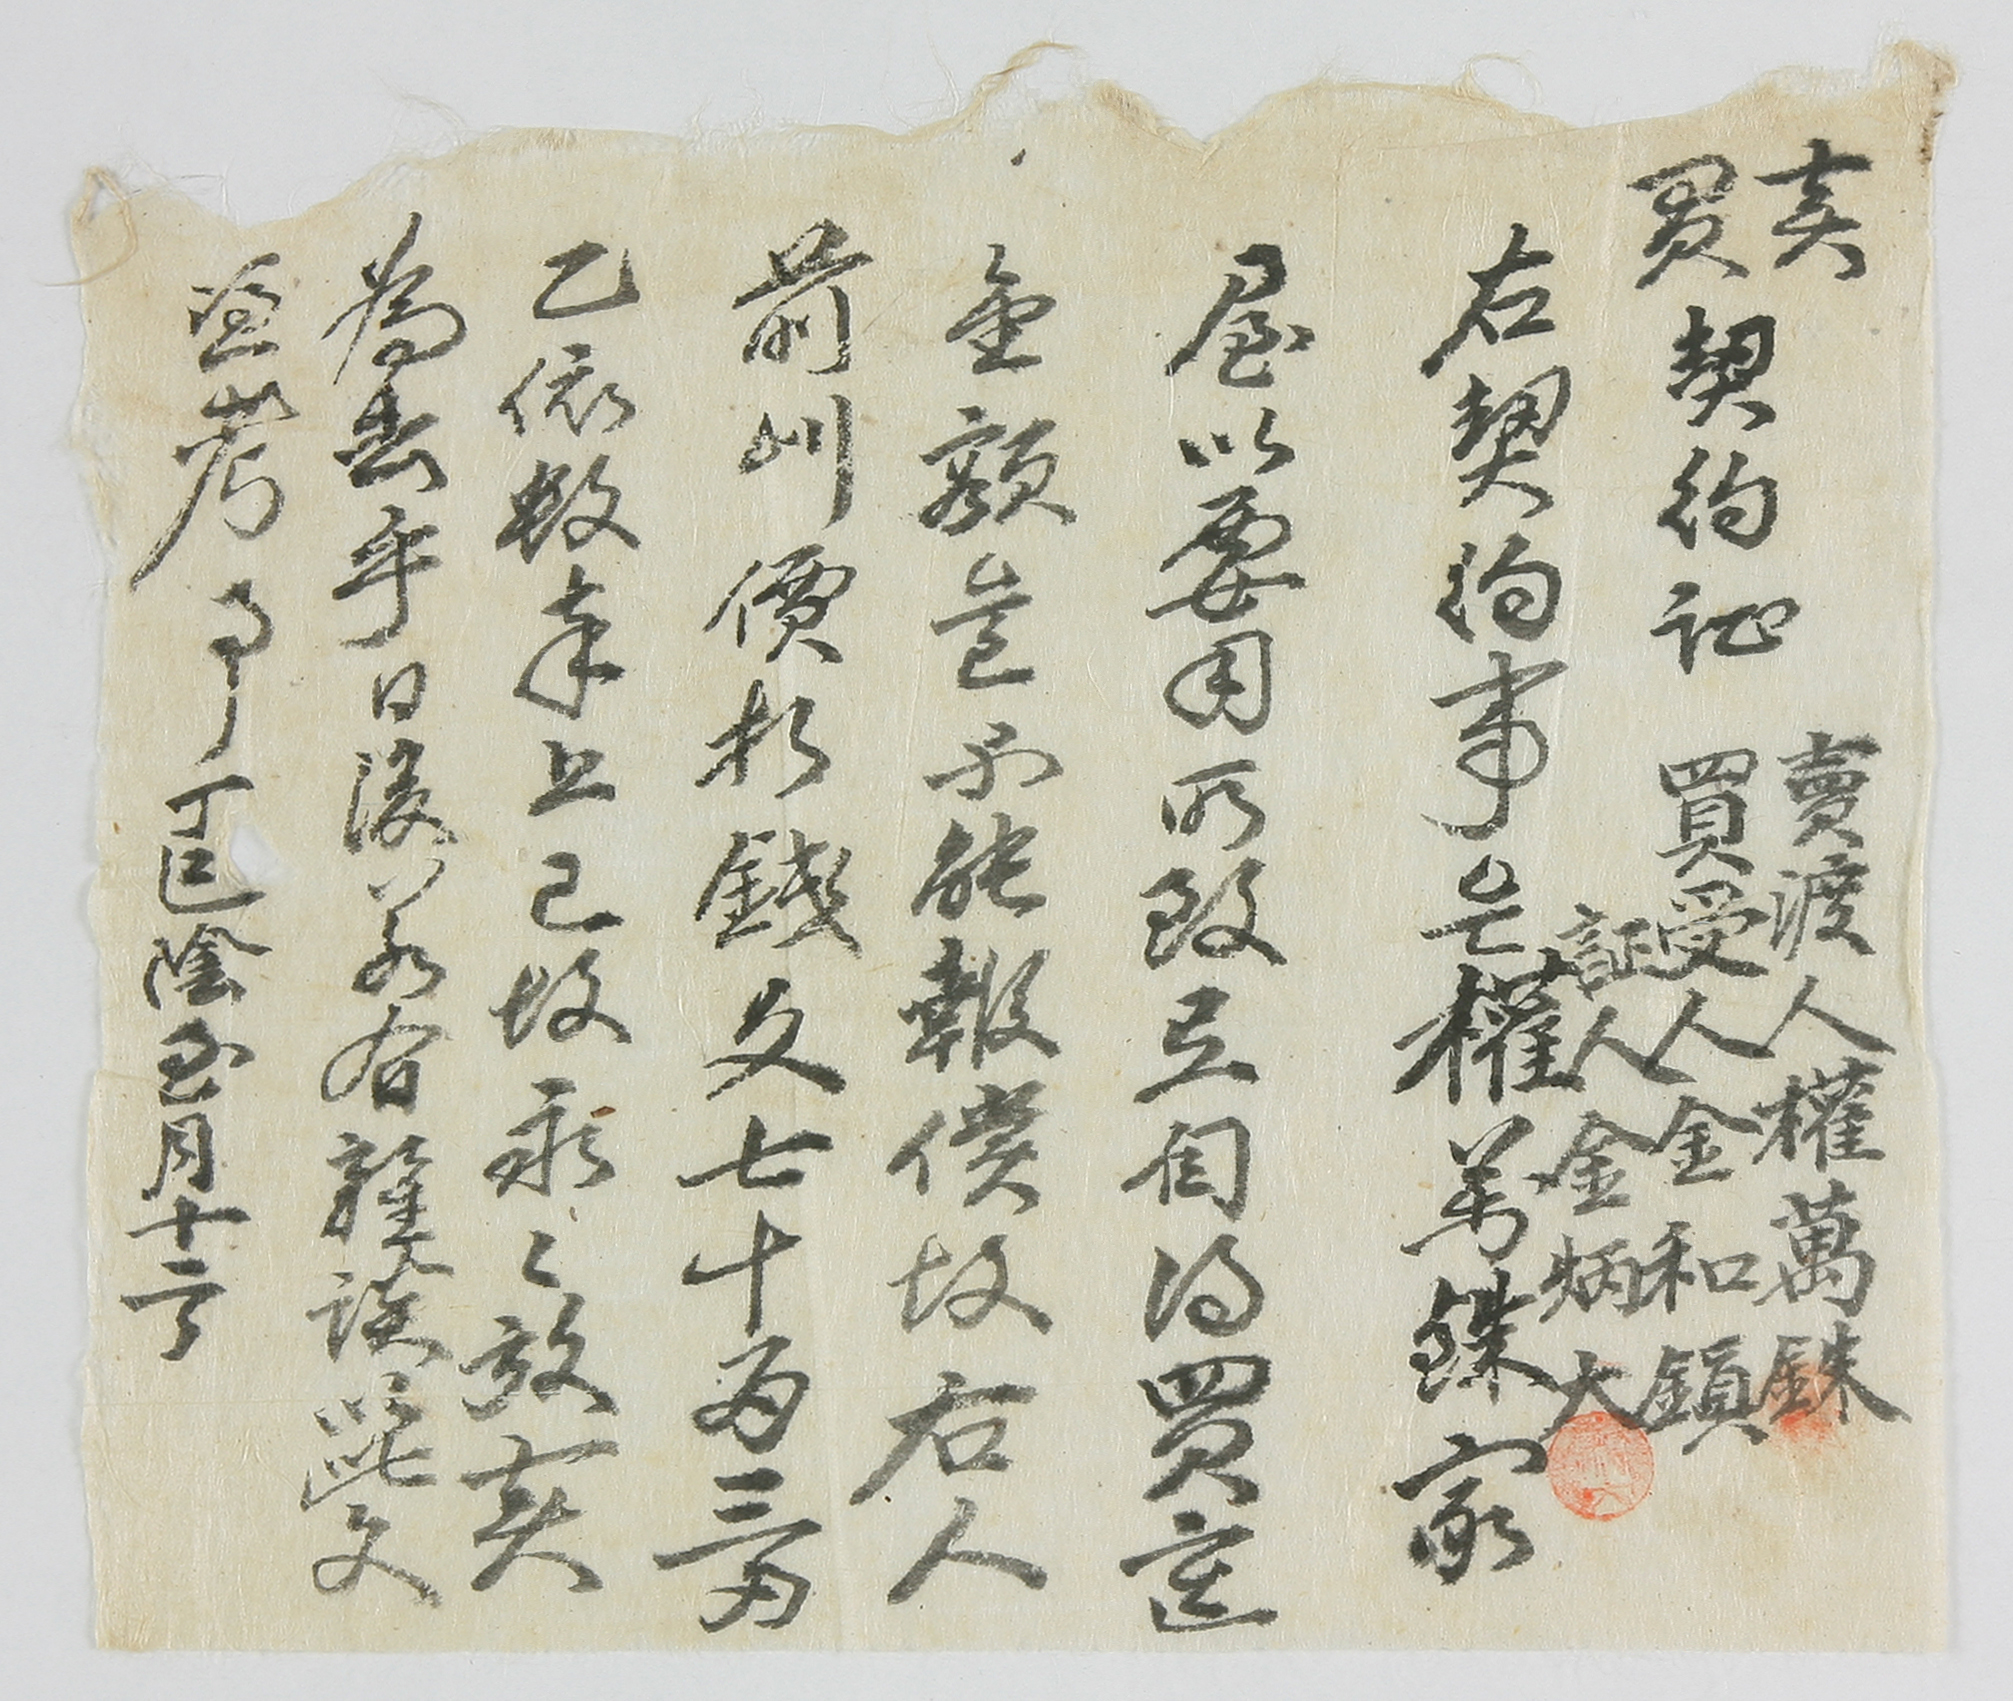 賣
買契約証
賣渡人權萬銖
買受人金和鎭
証人金炳大
右契約事은權萬銖家
屋以要用所致是自得買這
金額豈不能報償故右人
前川價折錢文七十兩三兩
乙依數奉上已故永々放賣
為去乎日後若有雜談以此文
憑考事
丁巳陰至月十二日